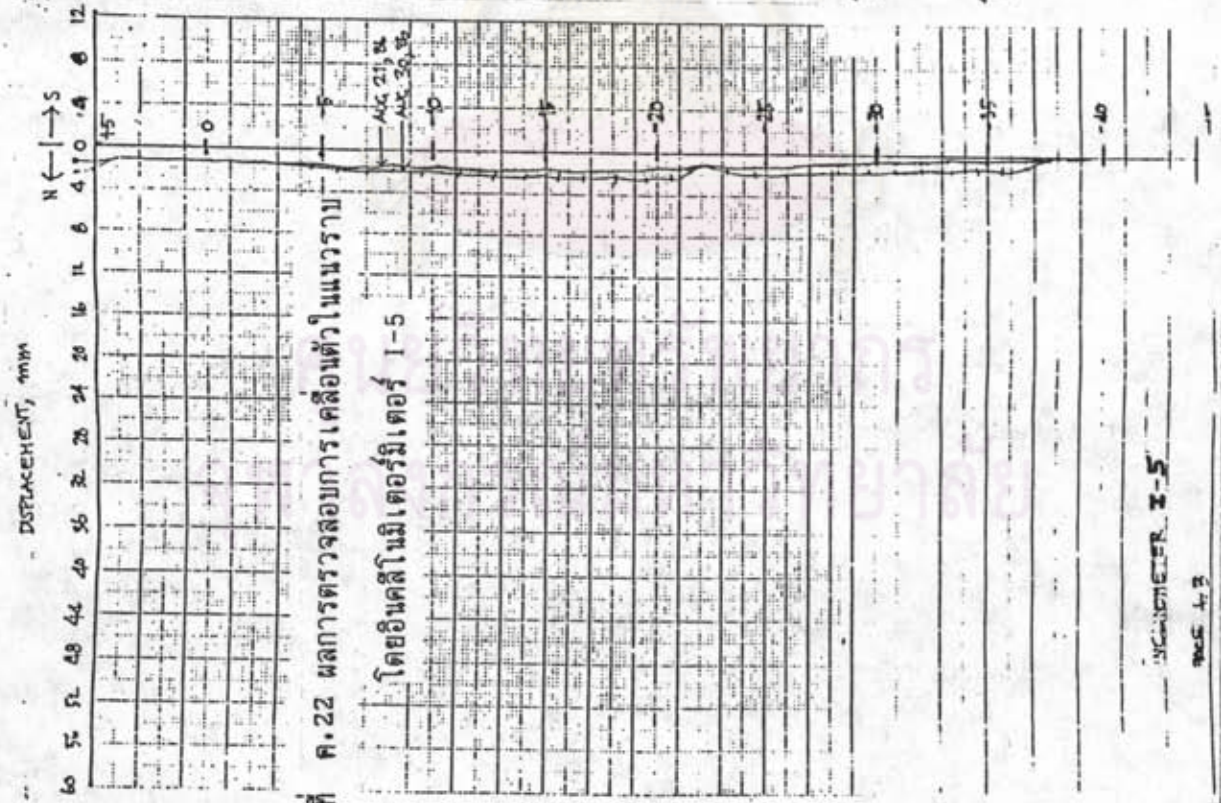 DISPLACEMENT, mm
N ← | → S
60 56 52 48 44 40 36 32 28 24 20 16 12 8 4 0 4 8 12
+5
0
-5
-10
-15
-20
-25
-30
-35
-40
AUG 27, 86
AUG 30, 86
ที่ ค.22 ผลการตรวจสอบการเคลื่อนตัวในแนวราบ
โดยอินคลิโนมิเตอร์มิเตอร์ I-5
INCLINOMETER I-5
จุฬาลงกรณ์มหาวิทยาลัย